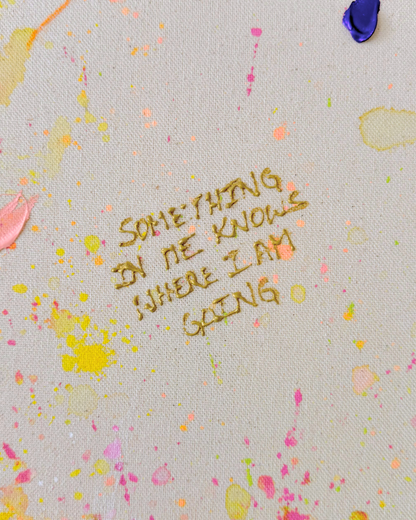 SOMETHING
IN ME KNOWS
WHERE I AM
GOING